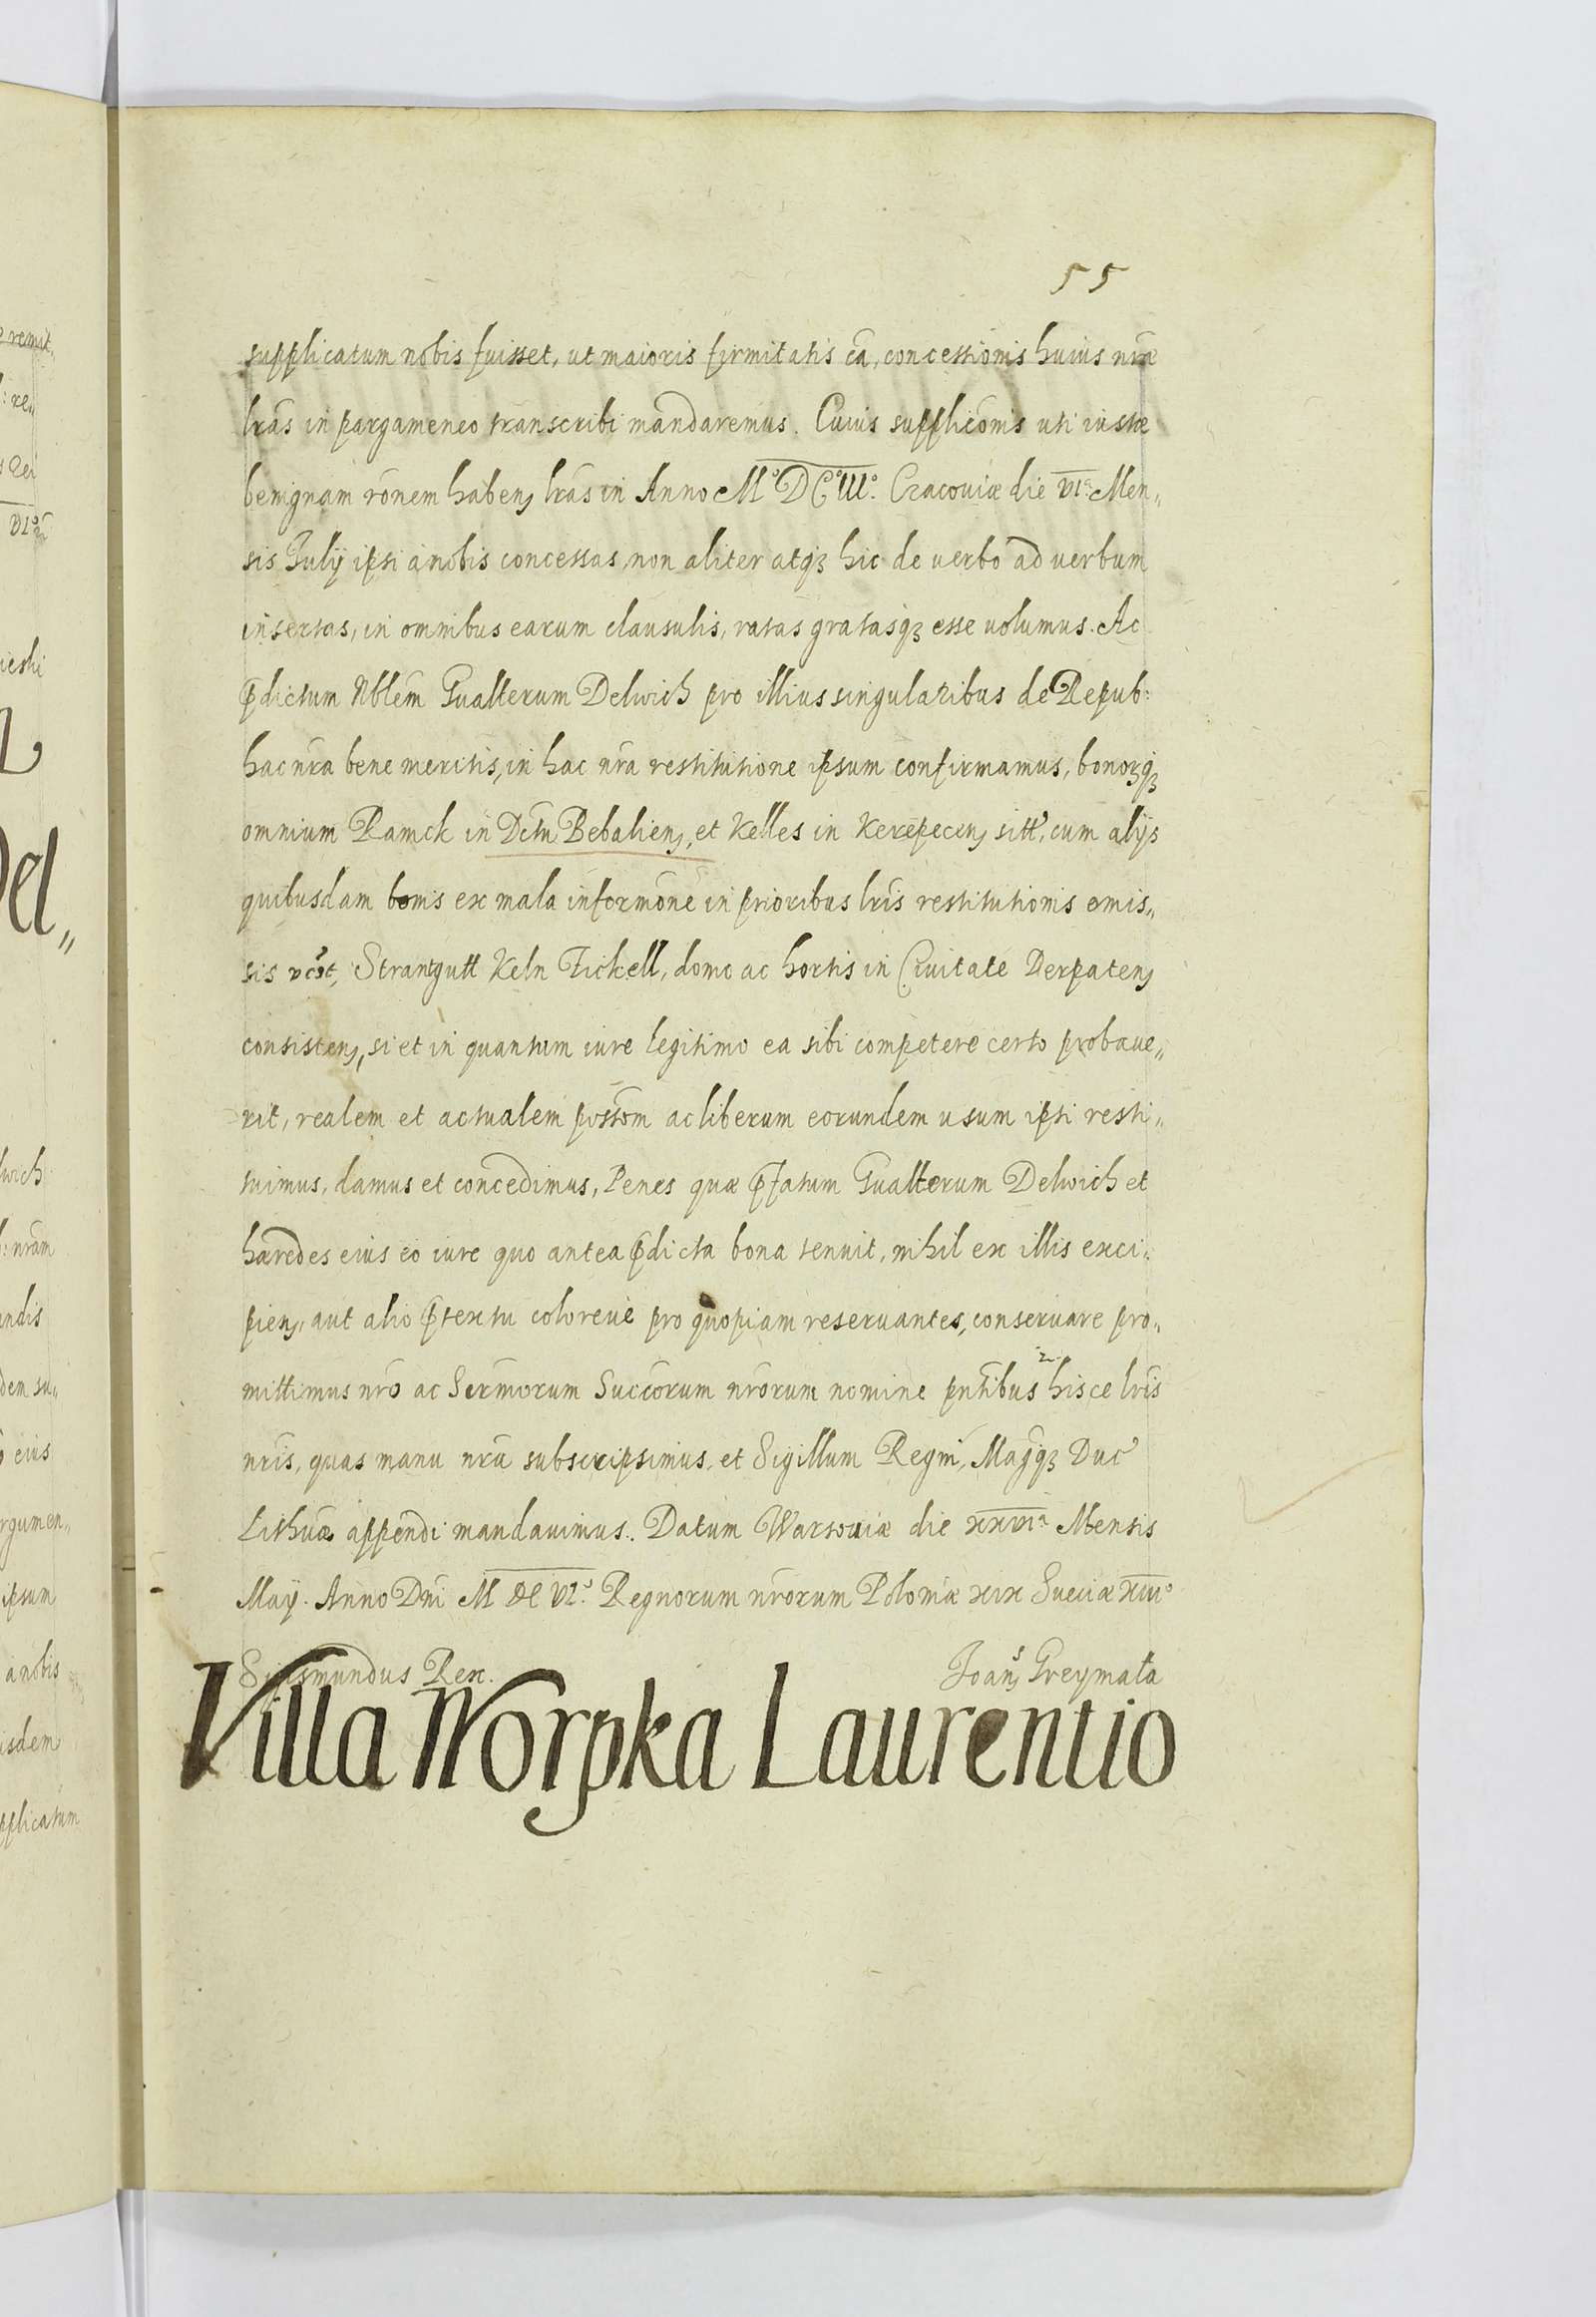 55
supplicatum nobis fuisset, ut maioris firmitatis cã, concessionis huius nrãe
lrãs in pargameneo transcribi mandaremus. Cuius supplicõnis uti iustæ
benignam rõnem habenʒ lrãs in Anno Mº DCº IIIº. Cracouiæ die VIª Men„
sis Julÿ ipsi a nobis concessas, non aliter atqʒ hic de uerbo ad uerbum
insertas, in omnibus earum clausulis, ratas gratasqʒ esse uolumus. Ac
p̃dictum Nblẽm Gualterum Delwich pro illius singularibus de Repub:
hac nrã bene meritis, in hac nrã restitutione ipsum confirmamus, bonoꝝqʒ
omnium Ramck in Dctũ Bebalienʒ, et Kelles in Kerepecenʒ sitt', cum alÿs
quibusdam bonis ex mala informõne in prioribus lrĩs restitutionis omis„
sis Strantgutt Keln Fickell, domo ac hortis in Ciuitate Derpatenʒ
consistenʒ, si et in quantum iure legitimo ea sibi competere certo probaue„
rit, realem et actualem possõm ac liberum eorundem usum ipsi resti„
tuimus, damus et concedimus, Penes quæ p̃fatum Gualterum Delwich et
hæredes eius eo iure quo antea p̃dicta bona tenuit, nihil ex illis exci„
pienʒ, aut alio p̃textu coloreue pro quopiam reseruantes, conseruare pro„
mittimus nrõ ac Sermõrum Succõrum nrõrum nomine pñtibus hisce lrĩs
nrĩs, quas manu nrã subscripsimus, et Sigillum Regni, Magqʒ Duc'
Lithuæ appendi mandauimus. Datum Warsouiæ die XXVIª Mensis
Maÿ. Anno Dnĩ M DC VIº. Regnorum nrõrum Poloniæ XIX Sueciæ XIIIº
Sigismundus Rex. Joañʒ Greymata
Villa Worpka Laurentio